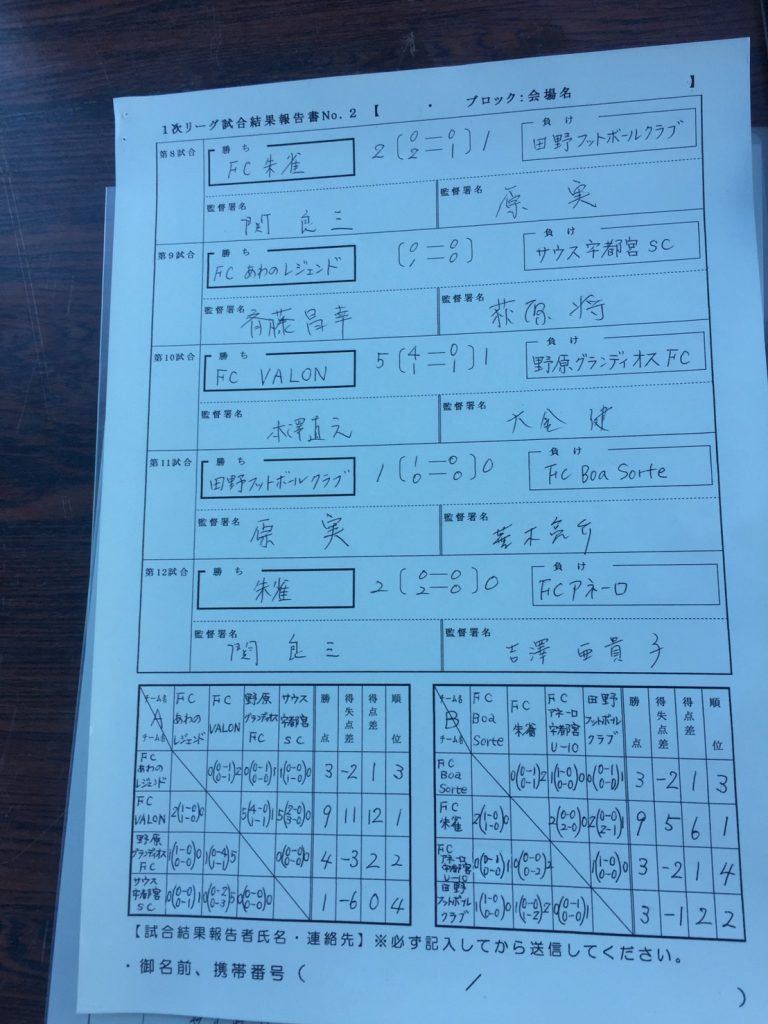 1次リーグ試合結果報告書No.2 【 ・ ブロック:会場名 】
第8試合 勝ち FC 朱雀 2 (0=0 2=1) 1 負け 田野フットボールクラブ
監督署名 関 良三 監督署名 原 実
第9試合 勝ち FC あわのレジェンド (0=0 1=0) 負け サウス宇都宮SC
監督署名 斉藤昌幸 監督署名 萩原 将
第10試合 勝ち FC VALON 5 (4=0 1=1) 1 負け 野原グランディオスFC
監督署名 本澤直元 監督署名 大金 健
第11試合 勝ち 田野フットボールクラブ 1 (1=0 0=0) 0 負け FC Boa Sorte
監督署名 原 実 監督署名
第12試合 勝ち 朱雀 2 (0=0 2=0) 0 負け FCアネーロ
監督署名 関 良三 監督署名 吉澤 亜貴子
チーム名 A チーム名 FCあわのレジェンド FC VALON 野原グランディオスFC サウス宇都宮SC 勝点 得失点差 得点差 順位
FCあわのレジェンド 0(0-1 0-1)2 0(0-1 0-0)1 1(0-0 1-0)0 3 -2 1 3
FC VALON 2(1-0 1-0)0 5(4-0 1-1)1 5(2-0 3-0)0 9 11 12 1
野原グランディオスFC 1(1-0 0-0)0 1(0-4 1-1)5 0(0-0 0-0)0 4 -3 2 2
サウス宇都宮SC 0(0-0 0-1)1 0(0-2 0-3)5 0(0-0 0-0)0 1 -6 0 4
チーム名 B チーム名 FC Boa Sorte FC 朱雀 FCアネーロ宇都宮U-10 田野フットボールクラブ 勝点 得失点差 得点差 順位
FC Boa Sorte 0(0-1 0-1)2 1(1-0 0-0)0 0(0-1 0-0)1 3 -2 1 3
FC 朱雀 2(1-0 1-0)0 2(0-0 2-0)0 2(0-0 2-1)1 9 5 6 1
FCアネーロ宇都宮U-10 0(0-1 0-0)1 0(0-0 0-2)2 1(1-0 0-0)0 3 -2 1 4
田野フットボールクラブ 1(1-0 0-0)0 1(0-0 1-2)2 0(0-1 0-0)1 3 -1 2 2
【試合結果報告者氏名・連絡先】※必ず記入してから送信してください。
・御名前、携帯番号( / )